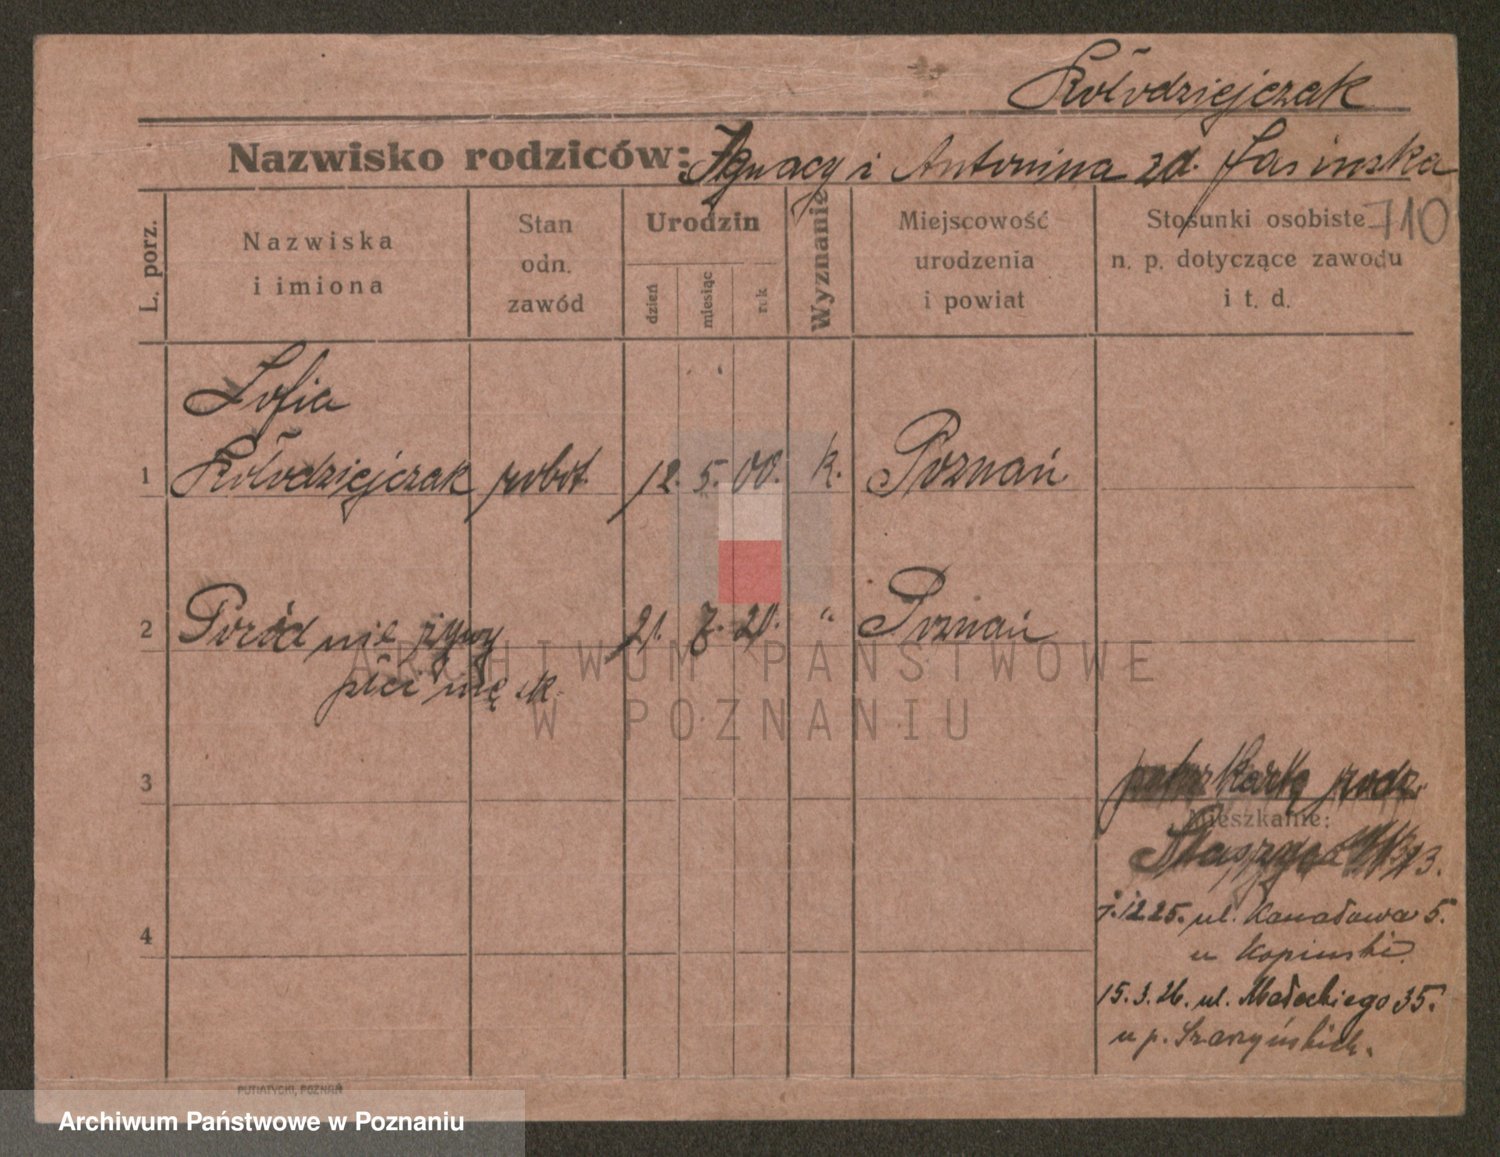 Kołodziejczak
Nazwisko rodziców: Ignacy i Antonina zd. Jasińska
710
L. porz.
Nazwiska
i imiona
Stan
odn.
zawód
Urodzin
dzień
miesiąc
rok
Wyznanie
Miejscowość
urodzenia
i powiat
Stosunki osobiste
n. p. dotyczące zawodu
i t. d.
Zofia
1 Kołodziejczak robot. 12. 5. 00. k. Poznań
2 Poród nieżywy 21. 7. 21. " Poznań
płci męsk.
ARCHIWUM PAŃSTWOWE
W POZNANIU
3
patrz kartę rodz.
Mieszkanie:
4
7.12.25. ul. Kanałowa 5.
u Kopinski
15.3.26. ul. Małeckiego 35.
u p. Szaszyńskich.
PUTIATYCKI, POZNAŃ
Archiwum Państwowe w Poznaniu